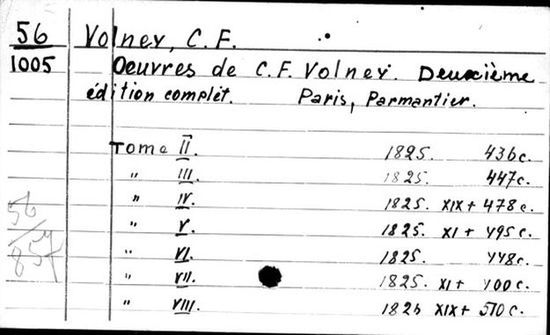 56 Volney, C.F.
1005 Oeuvres de C.F. Volney. Deuxième
édition complèt. Paris, Parmantier.
Tome II. 1825. 436c.
" III. 1825. 447c.
" IV. 1825. XIX + 478c.
" V. 1825. XI + 495c.
" VI. 1825. 448c.
" VII. 1825. XI + 400c.
" VIII. 1826 XIX + 510c.
56
857